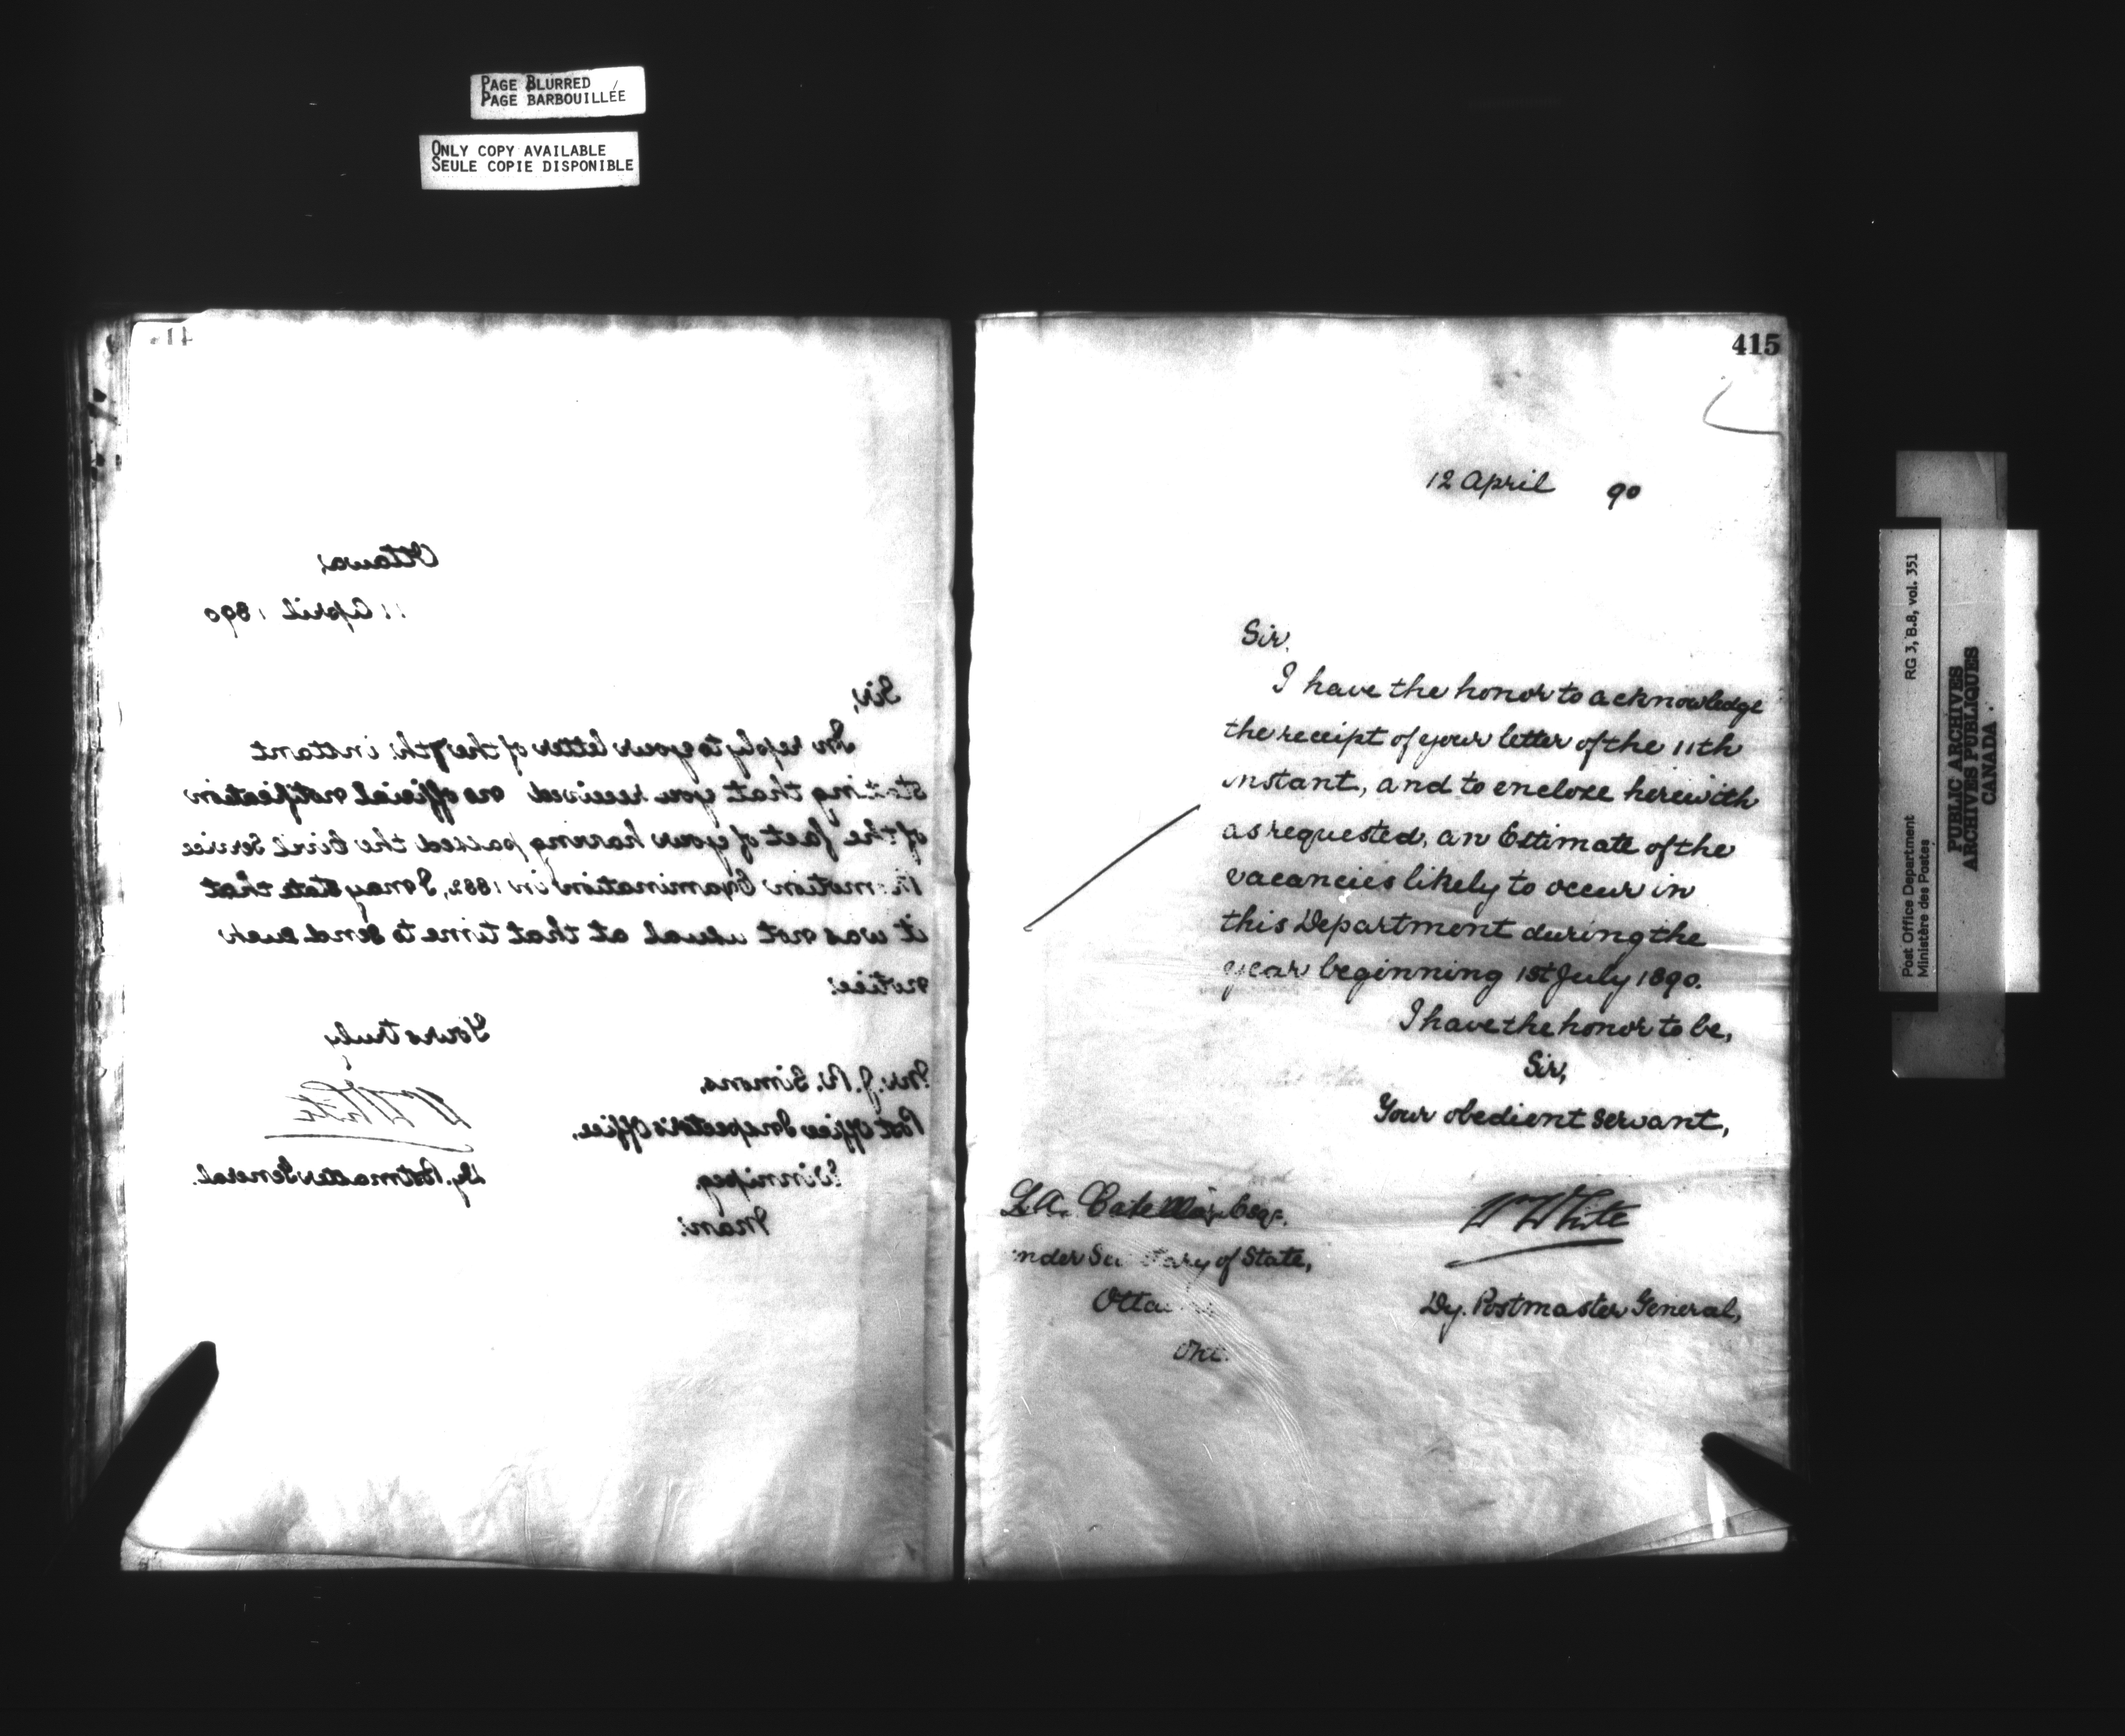 PAGE BLURRED
PAGE BARBOUILLÉE
ONLY COPY AVAILABLE
SEULE COPIE DISPONIBLE
Ottawa,
11 April 1890
Sir,
In reply to your letter of the 7th: instant
stating that you received no official notification
of the fact of your having passed the Civil Service
Promotion Examination in 1882, I may state that
it was not usual at that time to send such
notice:
Yours truly
WWhite
Dy. Postmaster General.
Mr. J. R. Simons,
Post Office Inspector's Office,
Winnipeg,
Man:
415
12 April 90
Sir,
I have the honor to acknowledge
the receipt of your letter of the 11th
instant, and to enclose herewith
as requested, an Estimate of the
vacancies likely to occur in
this Department during the
year beginning 1st July 1890.
I have the honor to be,
Sir,
Your obedient servant,
WWhite
Dy. Postmaster General,
L.A. Catellier, Esqr.
Under Secretary of State,
Ottawa
Ont.
Post Office Department RG 3, B.8, vol. 351
Ministère des Postes
PUBLIC ARCHIVES
ARCHIVES PUBLIQUES
CANADA